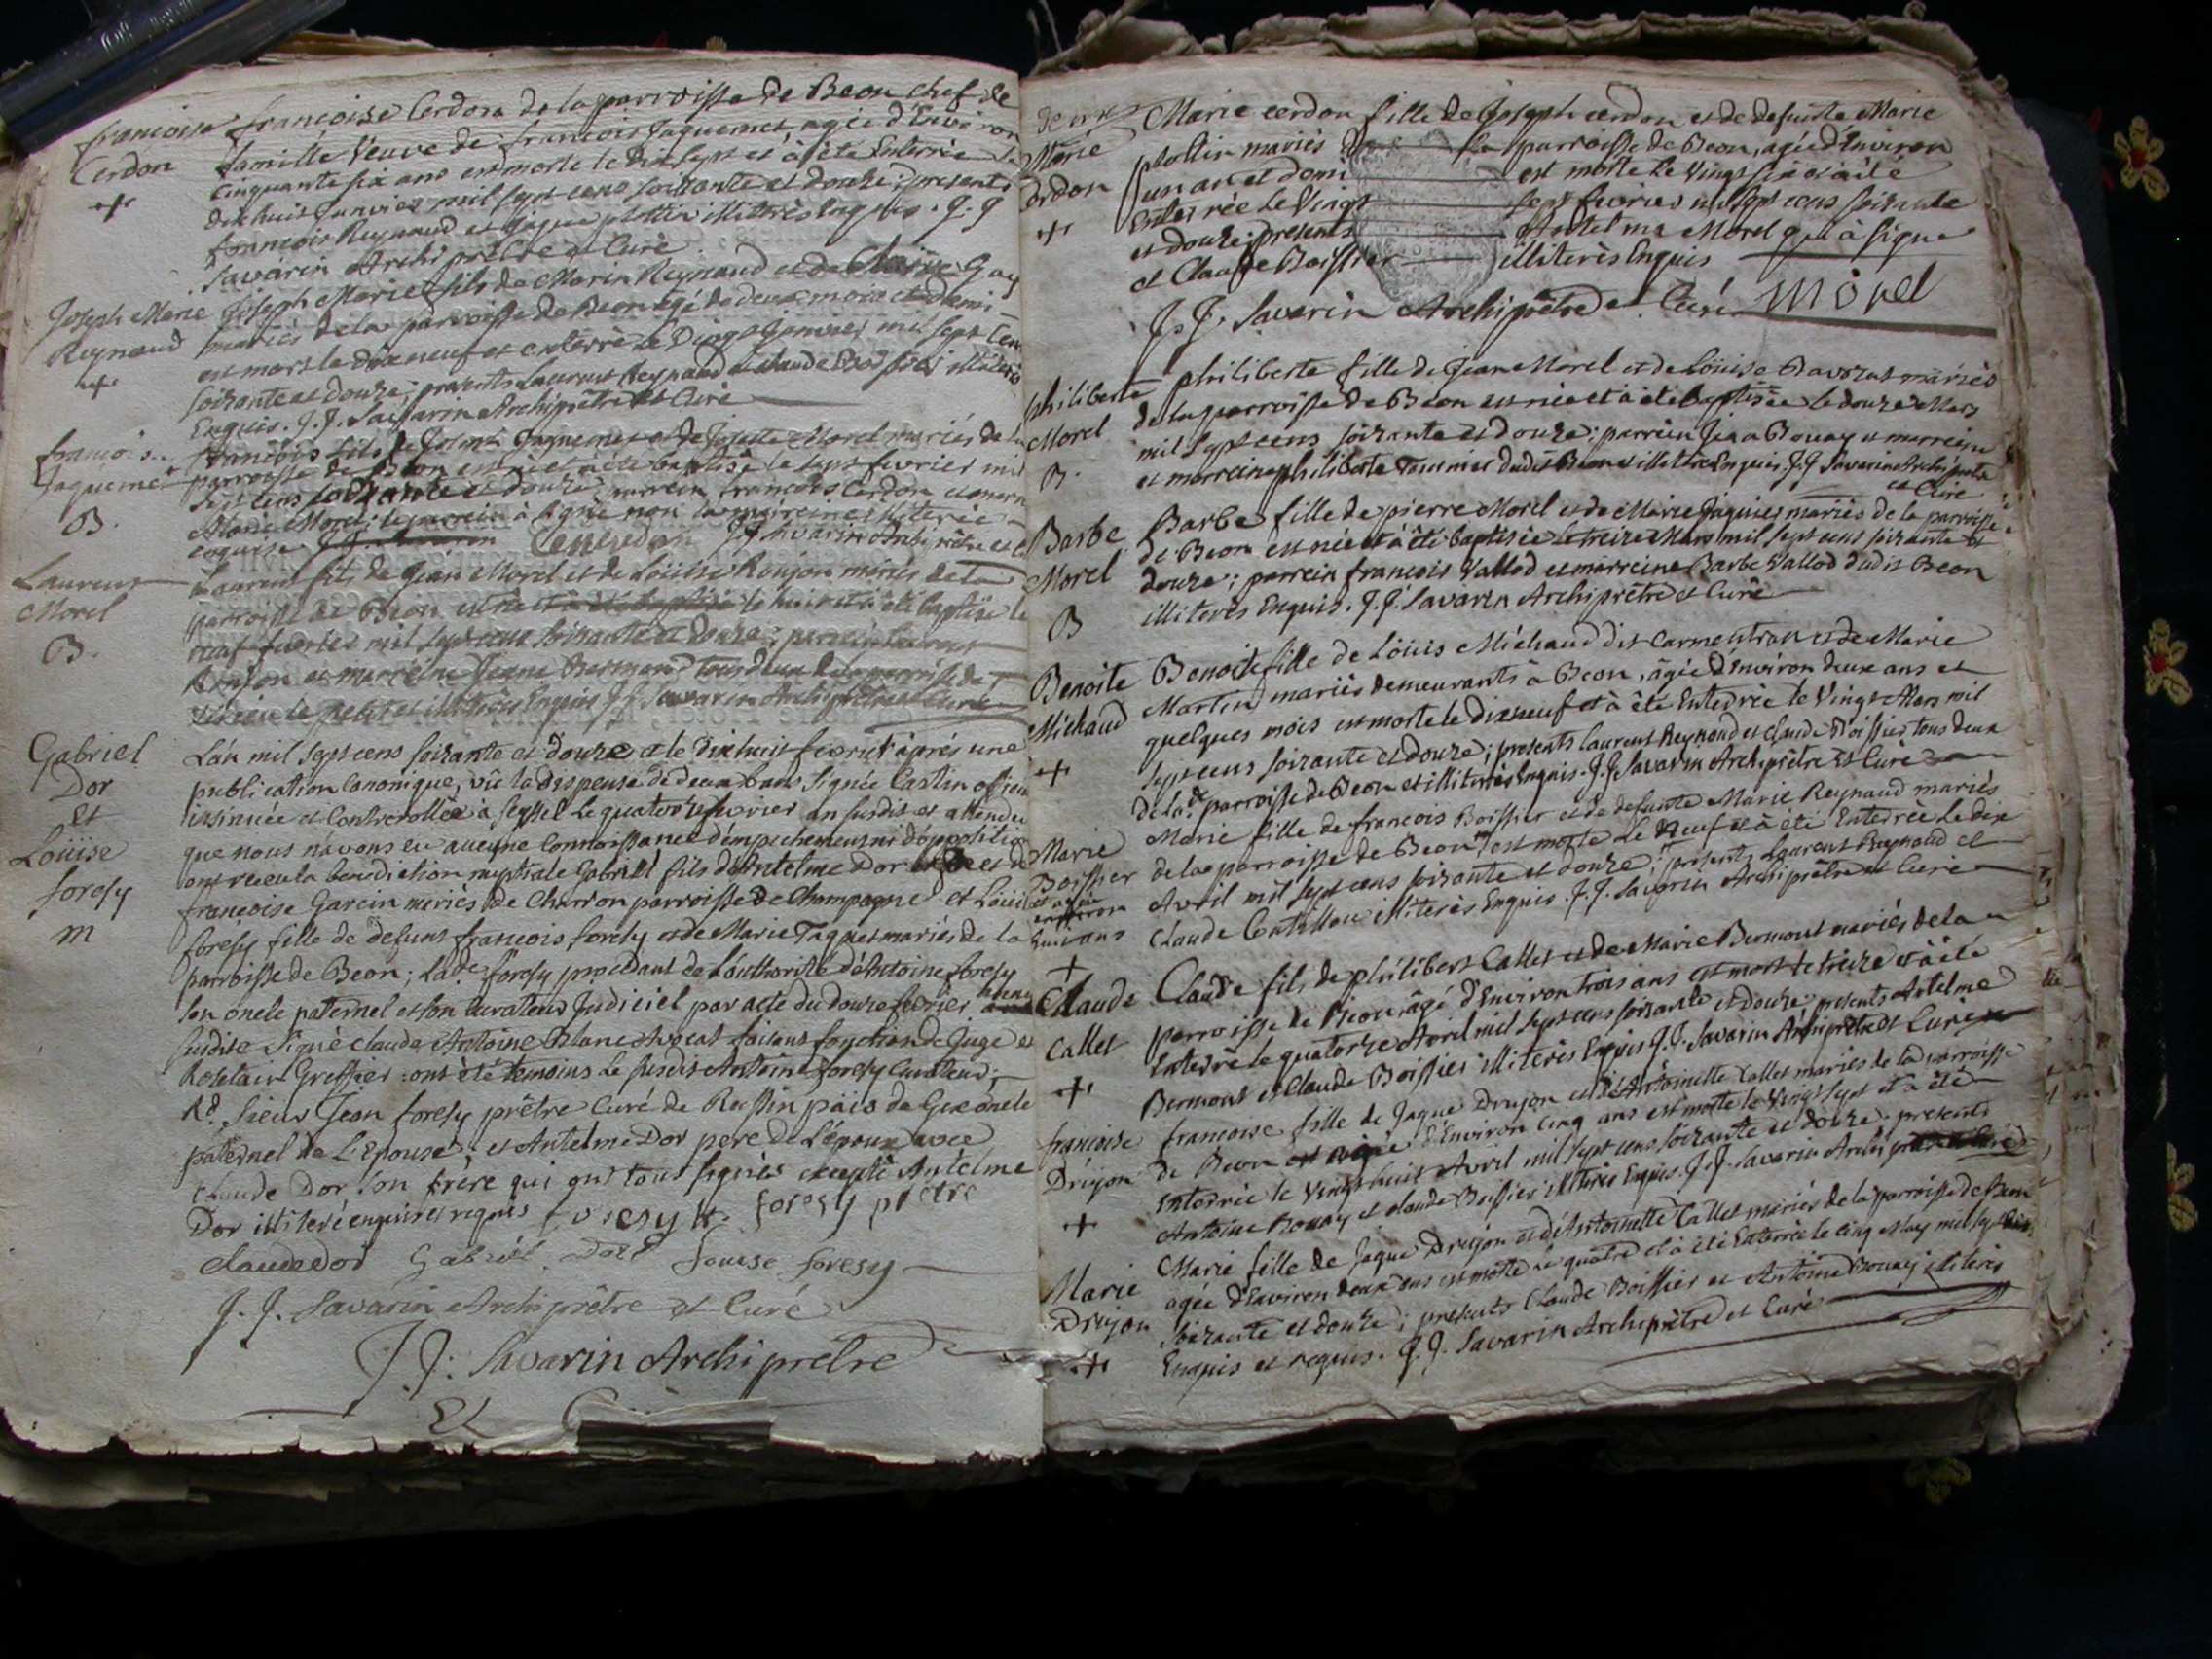 francoise
Cerdon
francoise Cerdon de la parroisse de Beon chef de
famille Veuve de francois Jaquemet, agée d'Environ
Cinquante six ans est morte le Dix sept et à été Enterrée le
dix huit Janvier mil sept cens soixante et douze; presents
francois Reynaud et Jaque plottin illiterés Enquis. J. J
Savarin Archiprêtre et Curé
Joseph Marie
Reynaud
Joseph Marie fils de Marin Reynaud et de Claire Guy
mariés de la parroisse de Beon agé de deux mois et demi
est mort le dix neuf et enterré le Vingt Janvier mil sept cen
soixante et douze; presents Laurent Reynaud et Claude Boissier illiterés
Enquis. J. J. Savarin Archiprêtre et Curé
francois
Jaquemet
B.
francois fils de Jaquemet et de Josette Morel mariés de la
parroisse de Beon est né et à été baptisé le sept fevrier mil
sept cens soixante et douze parrein francois Cerdon et marr
Marie Morel; le parrein à signé non la marreine illiterée
enquise J. J. Savarin Archiprêtre et C
Laurent
Morel
B.
Laurent fils de Jean Morel et de Loüise Roujon mariés de la
parroisse de Beon est né le huit et à été baptisé le
neuf fevrier mil sept cens soixante et douze; parrein Laurent
Roujon et marreine Jeane tous deux de la parroisse de
le petit et illiterés Enquis J. J. Savarin Archiprêtre et Curé
Gabriel
Dor
Et
Loüise
foresy
M
L'an mil sept cens soixante et douze et le dix huit fevrier après une
publication Canonique, vû la dispense de deux bans signée Castin official
insinuée et Controrollée à Seyssel le quatorze fevrier an susdit et attendu
que nous n'avons eu aucune Connoissance d'empechement ni d'oppositio
ont receu la benediction nuptiale Gabriel fils d'Antelme Dor et de
françoise Garcin mariés de Charron parroisse de Champagne et Loüise
foresy fille de defunt francois foresy et de Marie Taquet mariés de la
parroisse de Beon; Lade. foresy procedant de L'authorité d'Antoine foresy
son oncle paternel et son curateur Judiciel par acte du douze fevrier
susdite Signé Claude Antoine Blanc Avocat faisant fonction de Juge et
Rosetain Greffier: ont été temoins le susdit Antoine foresy Curateur;
Rd. Sieur Jean foresy prêtre Curé de Russin païs de Gex oncle
paternel de L'Epouse et Antelme Dor pere de L'époux avec
Claude Dor son frère qui ont tous signés excepté Antelme
Dor illiteré enquis et requis foresy foresy prêtre
Claude dor Gabriel Dor Louise foresy
J. J. Savarin Archiprêtre et Curé
J. J. Savarin Archiprêtre
Et C
Marie
Cerdon
Marie cerdon fille de Joseph cerdon et de defunte Marie
plottin mariés de la parroisse de Beon, agée d'Environ
un an et demi est morte le Vingt six et à été
Enterrée le Vingt sept fevrier mil sept cens soixante
et douze; presents Antelme Morel qui à signé
et Claude Boissier illiterés Enquis
J. J. Savarin Archiprêtre et Curé Morel
philiberte
Morel
B.
philiberte fille de Jean Morel et de Loüise Davorat mariés
de la parroisse de Beon est née et à été baptisée le douze Mars
mil sept cens soixante et douze; parrein Jean Bouay et marreine
et marreine philiberte Tournier dudit Beon et illiterés Enquis. J. J. Savarin Archiprêtre
et Curé
Barbe
Morel
B
Barbe fille de pierre Morel et de Marie Jaquier mariés de la parroisse
de Beon est née et à été baptisée le treize Mars mil sept cens soixante et
douze; parrein francois Vallod et marreine Barbe Vallod dudit Beon
illiterés Enquis. J. J. Savarin Archiprêtre et Curé
Benoite
Michaud
Benoite fille de Loüis Michaud dit Carmentran et de Marie
Martin mariés demeurants à Beon, âgée d'Environ deux ans et
quelques mois est morte le dix neuf et à été Enterrée le Vingt Mars mil
sept cens soixante et douze; presents Laurent Reynaud et Claude Boissier tous deux
de lade. parroisse de Beon et illiterés Enquis. J. J. Savarin Archiprêtre Et Curé
Marie
Boissier
Marie fille de francois Boissier et de defunte Marie Reynaud mariés
de la parroisse de Beon est morte le Neuf et à été Enterrée le dix
Avril mil sept cens soixante et douze; presents Laurent Reynaud et
Claude illiterés Enquis. J. J. Savarin Archiprêtre et Curé
Claude
Callet
Claude fils de philibert Callet et de Marie Bermont mariés de la
parroisse de Beon âgé d'Environ trois ans est mort le treize et à été
Enterré le quatorze Avril mil sept cens soixante et douze: presents Antelme
Bermont et Claude Boissier illiterés Enquis J. J. Savarin Archiprêtre et Curé
francoise
Drujon
francoise fille de Jaque Drujon et d'Antoinette Callet mariés de la parroisse
de Beon agée d'Environ cinq ans est morte le Vingt sept et à été
Enterrée le Vingt huit Avril mil sept cens soixante et douze: presents
Antoine Bouay et Claude Boissier illiterés Enquis. J. J. Savarin Archiprêtre et Curé
Marie
Drujon
Marie fille de Jaque Drujon et d'Antoinette Callet mariés de la parroisse de Beon
agée d'Environ deux ans est morte le quatre et à été Enterrée le cinq May mil sept cens
soixante et douze; presents Claude Boissier et Antoine Bouay illiterés
Enquis et requis. J. J. Savarin Archiprêtre et Curé